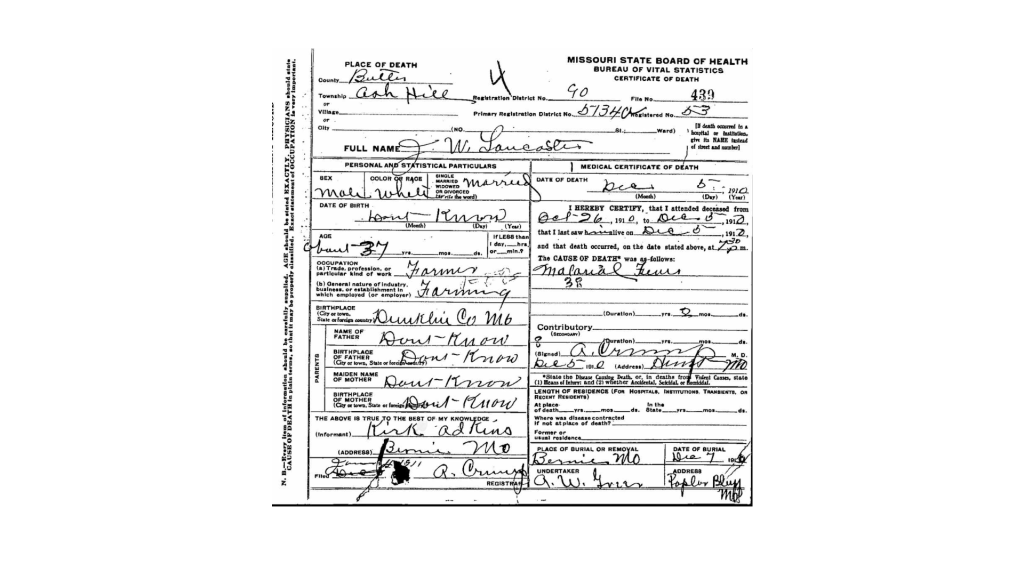 MISSOURI STATE BOARD OF HEALTH
BUREAU OF VITAL STATISTICS
CERTIFICATE OF DEATH
PLACE OF DEATH
County Butler
Township Ash Hill
or
Village
or
City (NO. St.; Ward)
Registration District No. 90 File No. 439
Primary Registration District No. 5134 Registered No. 53
[If death occurred in a
hospital or institution,
give its NAME instead
of street and number]
FULL NAME J. W. Lancaster
PERSONAL AND STATISTICAL PARTICULARS
SEX
Male
COLOR OR RACE
White
SINGLE
MARRIED
WIDOWED
OR DIVORCED
(Write the word)
Married
DATE OF BIRTH
Dont-Know
(Month) (Day) (Year)
AGE
About 37 yrs. mos. ds.
If LESS than
1 day, hrs.
or min.?
OCCUPATION
(a) Trade, profession, or
particular kind of work Farmer
(b) General nature of industry,
business, or establishment in
which employed (or employer) Farming
BIRTHPLACE
(City or town,
State or foreign country) Dunklin Co Mo
PARENTS
NAME OF
FATHER Dont-Know
BIRTHPLACE
OF FATHER
(City or town, State or foreign country) Dont-Know
MAIDEN NAME
OF MOTHER Dont-Know
BIRTHPLACE
OF MOTHER
(City or town, State or foreign country) Dont-Know
THE ABOVE IS TRUE TO THE BEST OF MY KNOWLEDGE
(Informant) Kirk Adkins
(ADDRESS) Bernie Mo
Filed 1911 A. Crump
REGISTRAR
MEDICAL CERTIFICATE OF DEATH
DATE OF DEATH
Dec 5 1910
(Month) (Day) (Year)
I HEREBY CERTIFY, that I attended deceased from
Oct-26 1910, to Dec 5, 1910,
that I last saw him alive on Dec 5, 1910,
and that death occurred, on the date stated above, at 7 30 m.
The CAUSE OF DEATH* was as follows:
Malarial Fever
38
(Duration) yrs. 2 mos. ds.
Contributory
(SECONDARY)
(Duration) yrs. mos. ds.
(Signed) A. Crump, M. D.
Dec 5 1910 (Address) Mo
*State the Disease Causing Death, or, in deaths from Violent Causes, state
(1) Means of Injury; and (2) whether Accidental, Suicidal, or Homicidal.
LENGTH OF RESIDENCE (FOR HOSPITALS, INSTITUTIONS, TRANSIENTS, OR
RECENT RESIDENTS)
At place
of death yrs. mos. ds.
In the
State yrs. mos. ds.
Where was disease contracted
if not at place of death?
Former or
usual residence
PLACE OF BURIAL OR REMOVAL
Bernie Mo
DATE OF BURIAL
Dec 7 1910
UNDERTAKER
A. W. Greer
ADDRESS
Poplar Bluff
Mo
N. B.—Every item of information should be carefully supplied. AGE should be stated EXACTLY. PHYSICIANS should state
CAUSE OF DEATH in plain terms, so that it may be properly classified. Exact statement of OCCUPATION is very important.